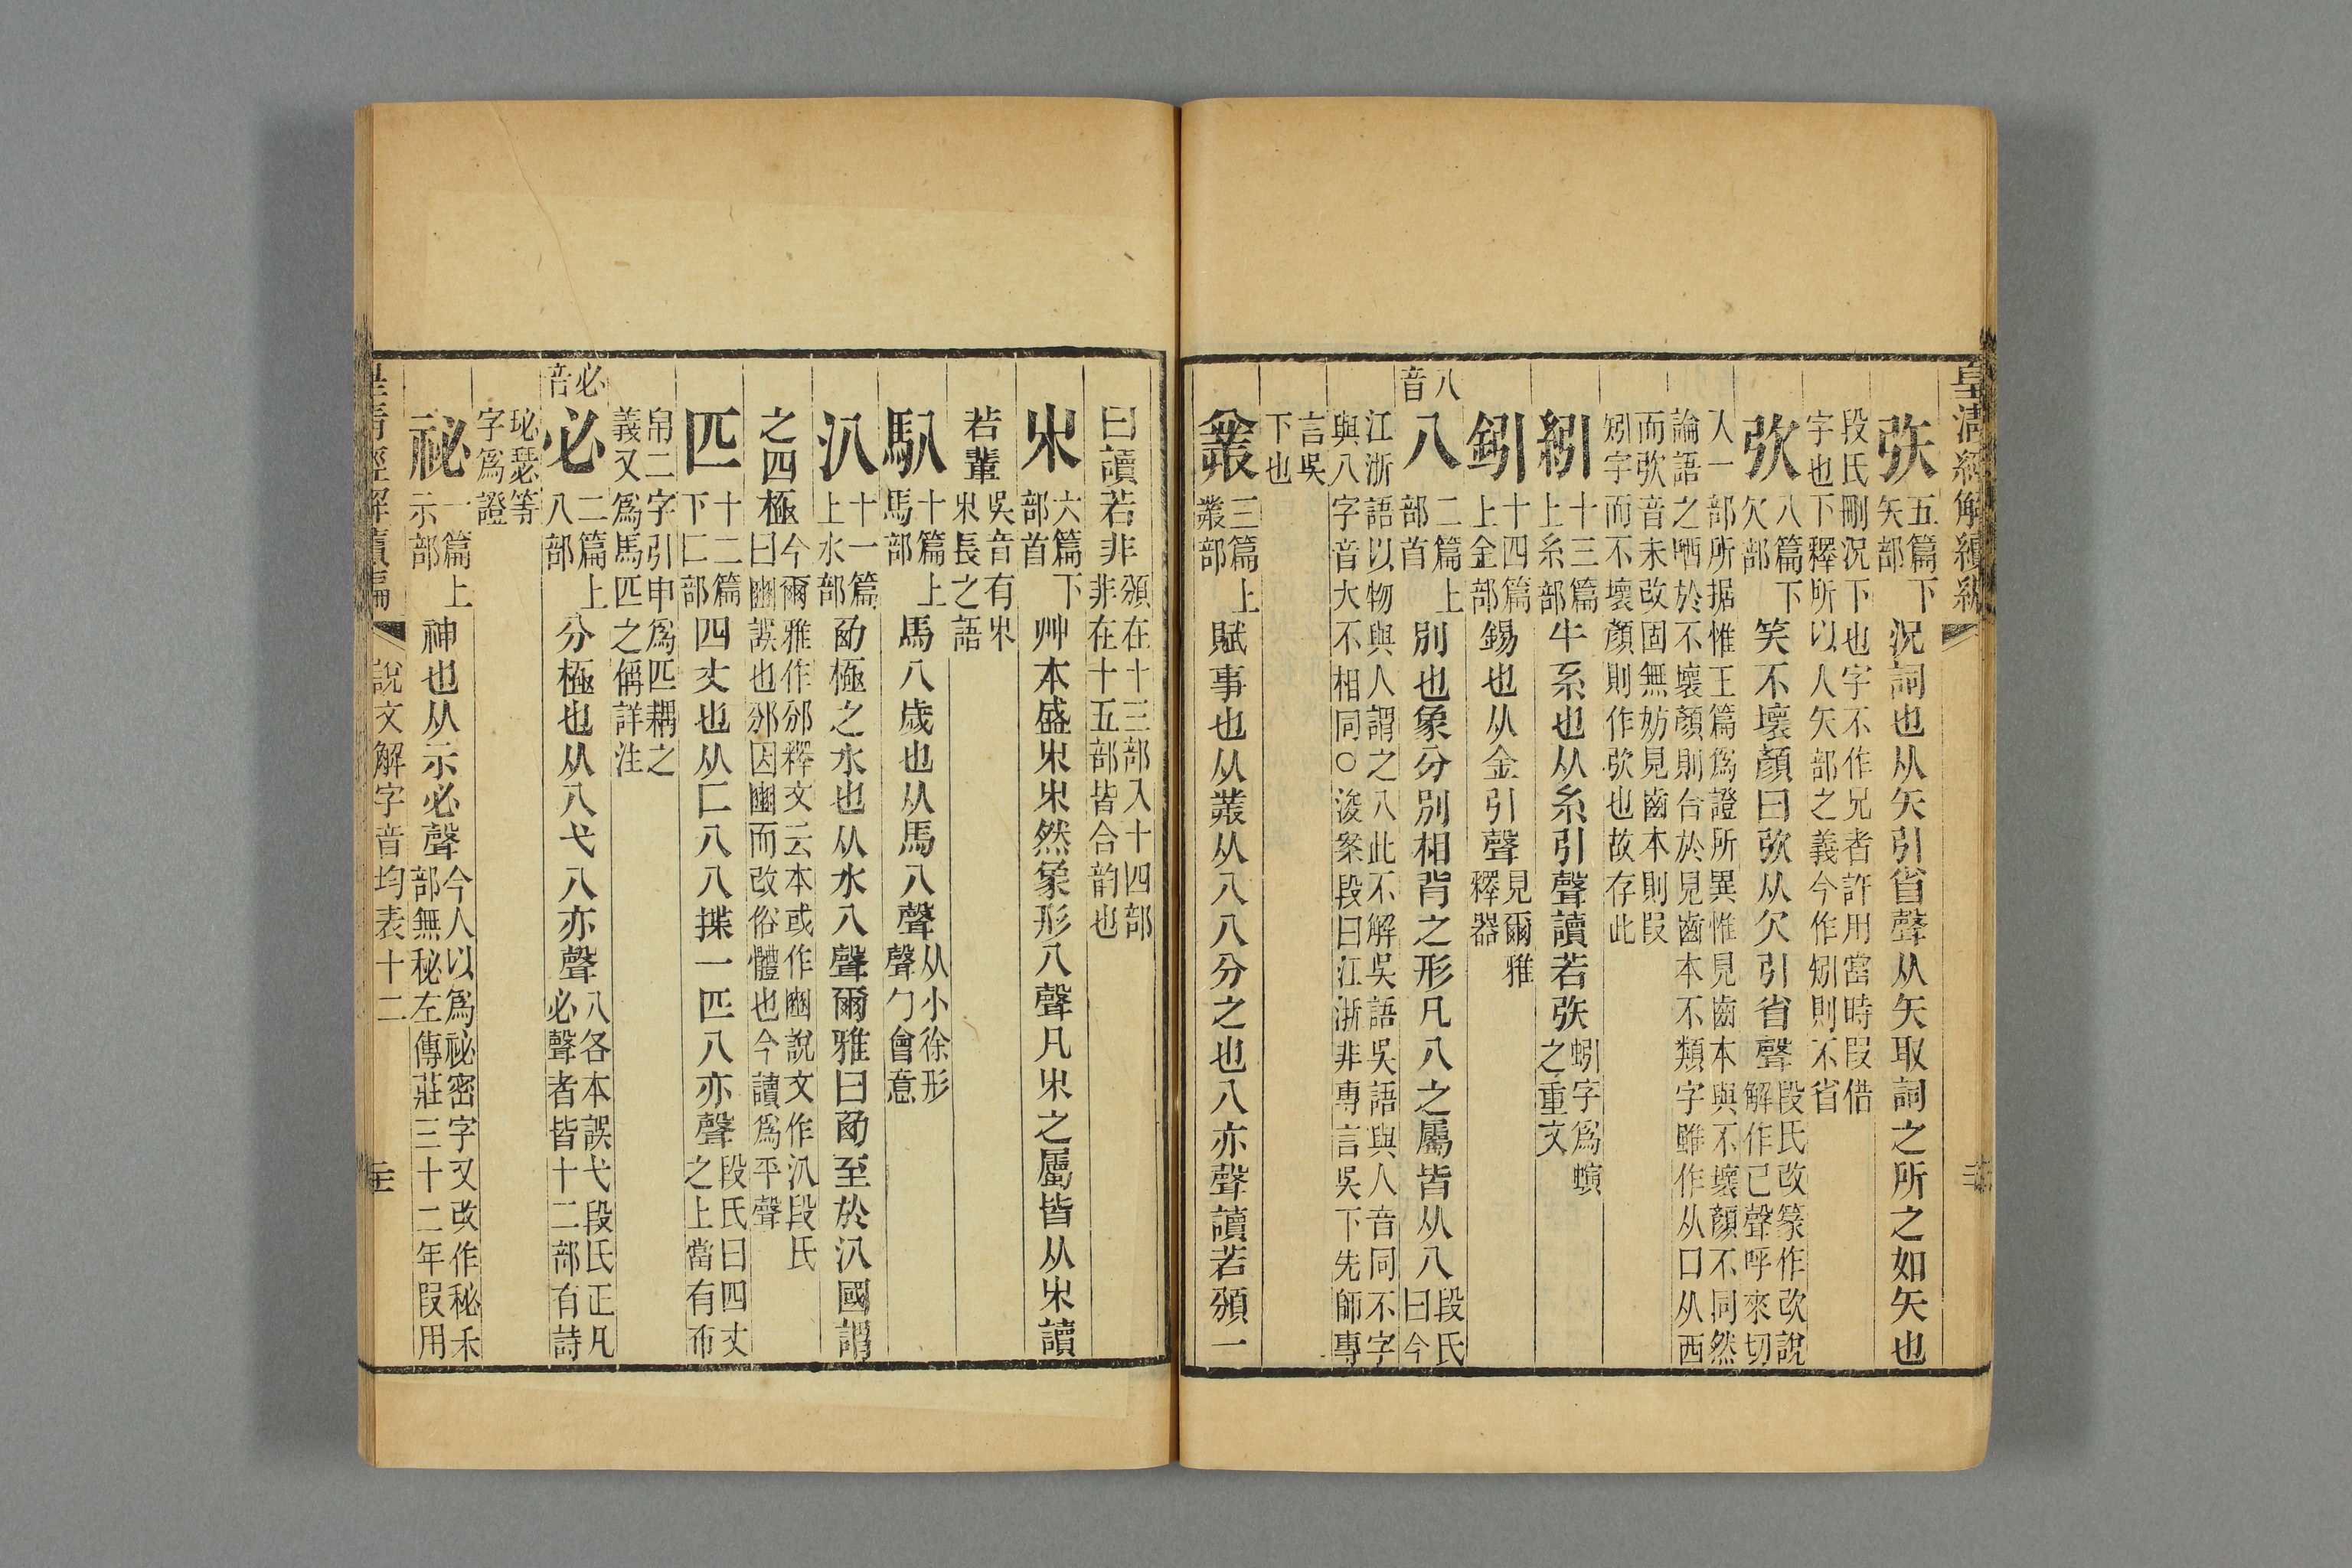 皇清經解續編
矤
五篇下
矢部
況詞也从矢引省聲从矢取詞之所之如矢也
段氏刪況下也字不作兄者許用當時叚借
字也下釋所以人矢部之義今作矧則不省
弞
八篇下
欠部
笑不壞顏曰弞从欠引省聲
段氏改篆作㰦說
解作已聲呼來切
人一部所据惟王篇爲證所異惟見齒本與不壞顏不同然
論語之哂於不壞顏則合於見齒本不類字雖作从口从西
而弞音未改固無妨見齒本則叚
矧字而不壞顏則作弞也故存此
紖
十三篇
上糸部
牛系也从糸引聲讀若矤
蚓字爲螾
之重文
鈏
十四篇
上金部
錫也从金引聲
見爾雅
釋器
八音
八
二篇上
部首
別也象分別相背之形凡八之屬皆从八
段氏
曰今
江浙語以物與人謂之八此不解吳語吳語與人音同不字
與八字音大不相同○浚案段曰江浙非專言吳下先師專
言吳
下也
三篇上
䒑部
賦事也从䒑从八八分之也八亦聲讀若頒一
曰讀若非
頒在十三部入十四部
非在十五部皆合韵也
𣎵
六篇下
部首
艸木盛𣎵𣎵然象形八聲凡𣎵之屬皆从𣎵讀
若輩
吳音有𣎵
𣎵長之語
馬八
十篇上
馬部
馬八歲也从馬八聲
从小徐形
聲勹會意
汃
十一篇
上水部
西極之水也从水八聲爾雅曰西至於汃國謂
之四極
今爾雅作邠釋文云本或作豳說文作汃段氏
曰豳誤也邠因豳而改俗體也今讀爲平聲
匹
十二篇
下匸部
四丈也从匸八八揲一匹八亦聲
段氏曰四丈
之上當有布
帛二字引申爲匹耦之
義又爲馬匹之偁詳注
必音
必
二篇上
八部
分極也从八弋八亦聲
八各本誤弋段氏正凡
必聲者皆十二部有詩
珌瑟等
字爲證
祕
一篇上
示部
神也从示必聲
今人以爲祕密字又改作秘禾
部無秘左傳莊三十二年叚用
皇清經解續編
說文解字音均表十二